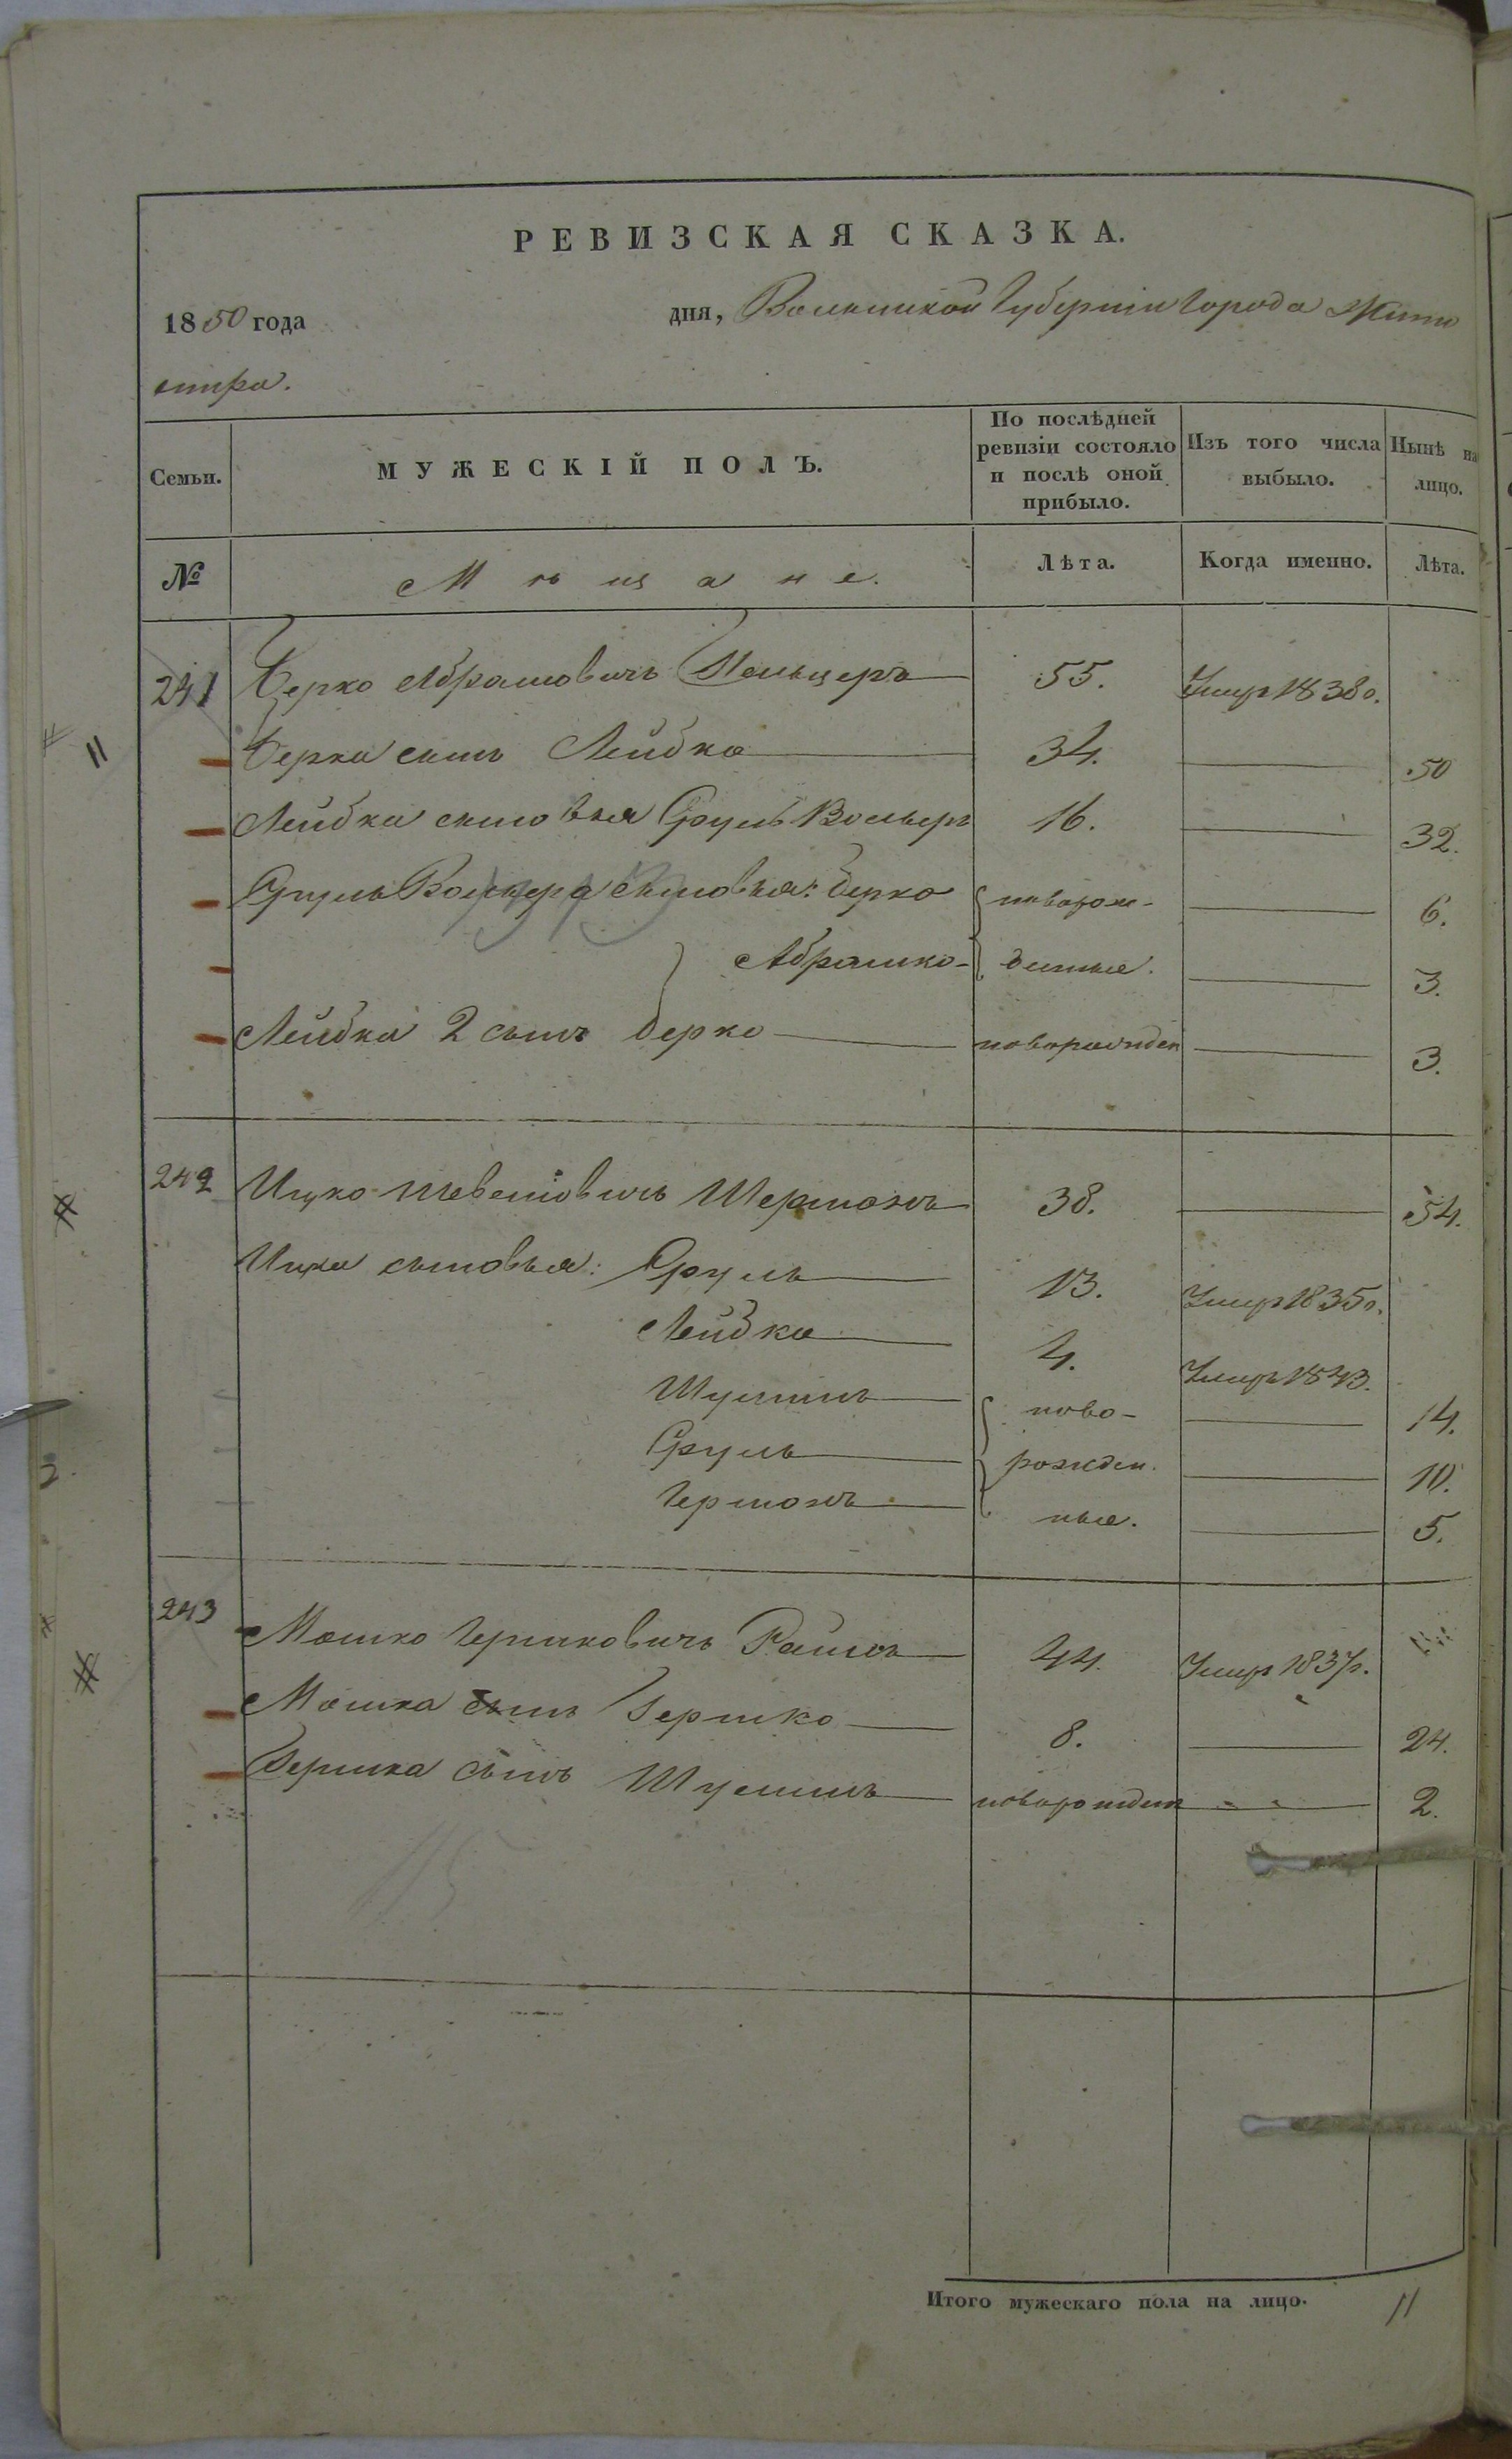 РЕВИЗСКАЯ СКАЗКА.
1850 года дня, Волынской Губерніи Города Жито
мира.
Семьи. МУЖЕСКІЙ ПОЛЪ. По послѣдней ревизіи состояло и послѣ оной прибыло. Изъ того числа выбыло. Нынѣ на лицо.
№ Мѣщане. Лѣта. Когда именно. Лѣта.
241 Берко Абрамовичъ Мельцеръ 55. Умеръ 1838 г.
Берка сынъ Лейбка 34. 50
Лейбка сыновья Сруль Волькеръ 16. 32.
Сруль Волькера сыновья: Берко новорож- 6.
Абрамко денные. 3.
Лейбка 2 сынъ Берко новорожден 3.
242 Ицко Шерманъ 38. 54.
Ицка сыновья: Сруль 13. Умеръ 1835 г.
Лейбка 4. Умеръ 1843.
Шулимъ ново- 14.
Сруль рожден 10.
Германъ ные. 5.
243 Мошко Гершковичъ 44. Умеръ 1837 г.
Мошка сынъ Гершко 8. 24.
Гершка сынъ Шулимъ новорожден 2.
115
Итого мужескаго пола на лицо. 11